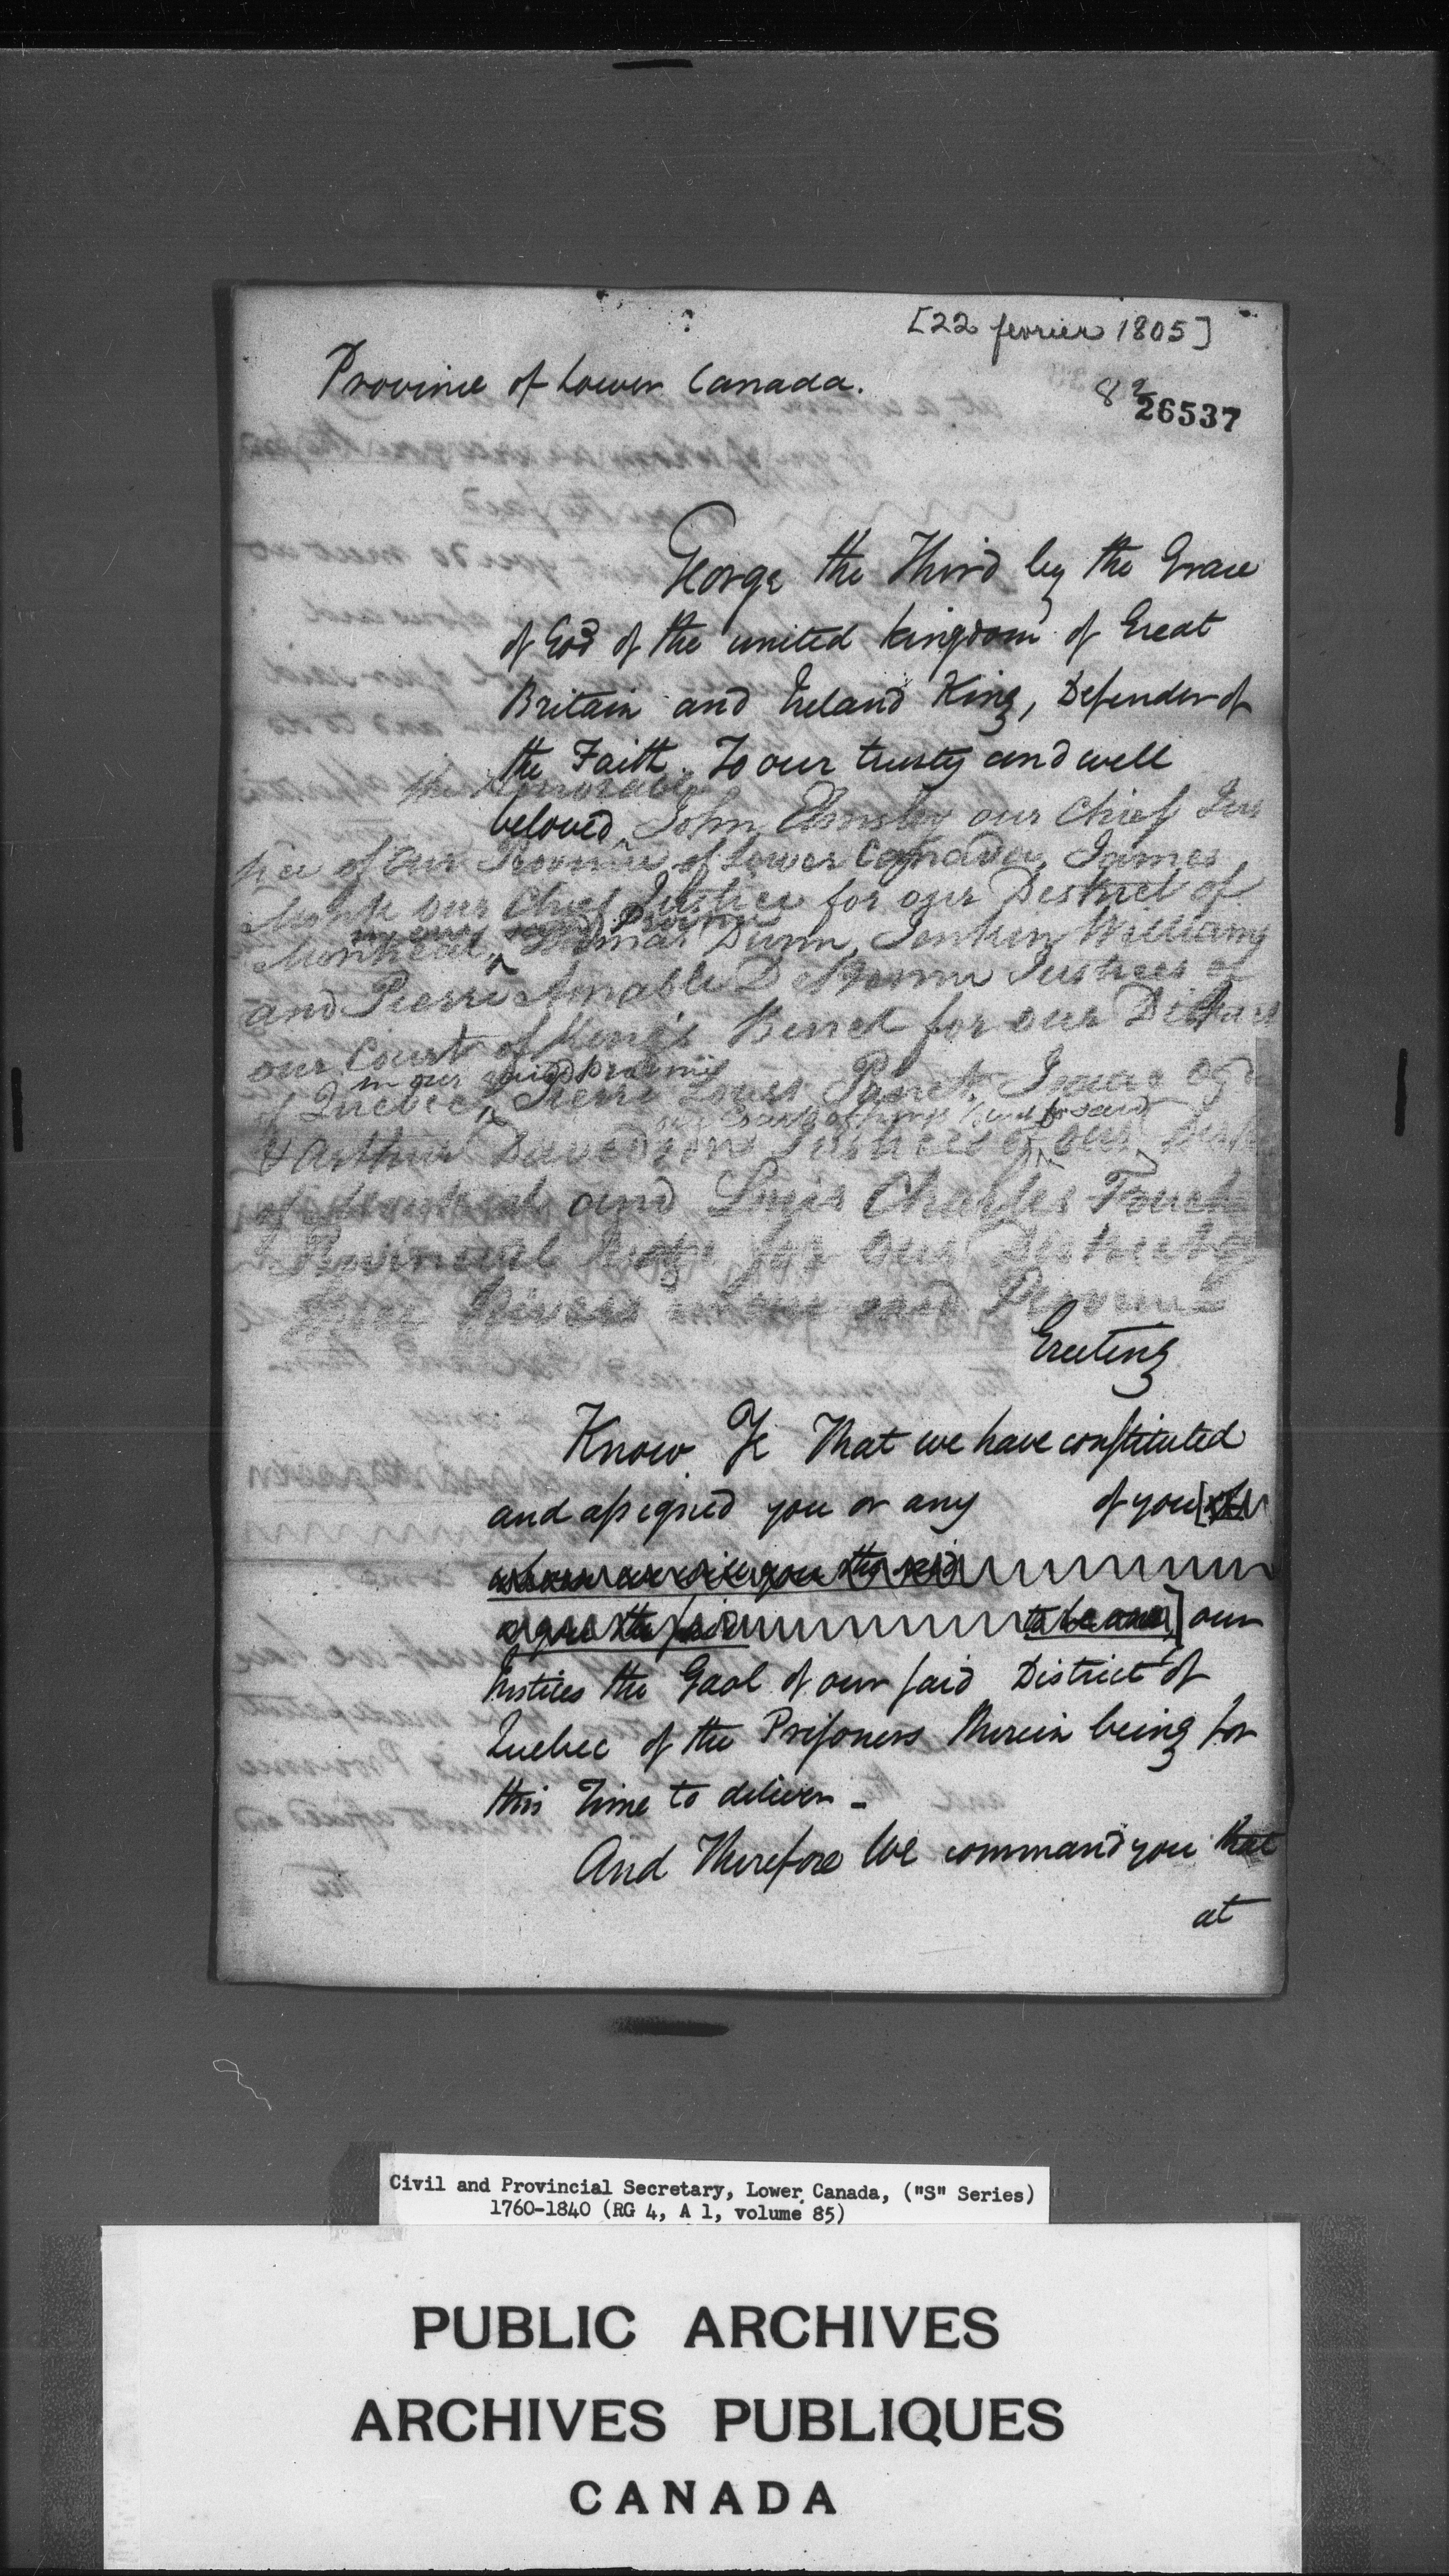 [22 fevrier 1805]
Province of Lower Canada.
8
26537
George the Third by the Grace
of God of the united kingdom of Great
Britain and Ireland King, Defender of
the Faith. To our trusty and well
the Honorable
beloved John Elmsley our Chief Jus
tice of our Province of Lower Canada, James
Monk our Chief Justice for our District of
in our said Province
Montreal, Thomas Dunn, Jenkin Williams
and Pierre Amable D Bonne Justices of
our Court of King's Bench for our District
in our said Province
of Quebec, Pierre Louis Panet, Isaac Og
our Court of Kings Bench for said
& Arthur Davidson Justices of our Dist
of Montreal and Louis Charles Fouch
Provincial Judge for our District of
Three Rivers in our said Province
Greeting
Know Ye That we have constituted
and assigned you or any of you [of
whom we will you the said
or you the said to be one,] our
Justices the Gaol of our said District of
Quebec of the Prisoners therein being for
this Time to deliver -
And Therefore We command you that
at
Civil and Provincial Secretary, Lower Canada, ("S" Series)
1760-1840 (RG 4, A 1, volume 85)
PUBLIC ARCHIVES
ARCHIVES PUBLIQUES
CANADA